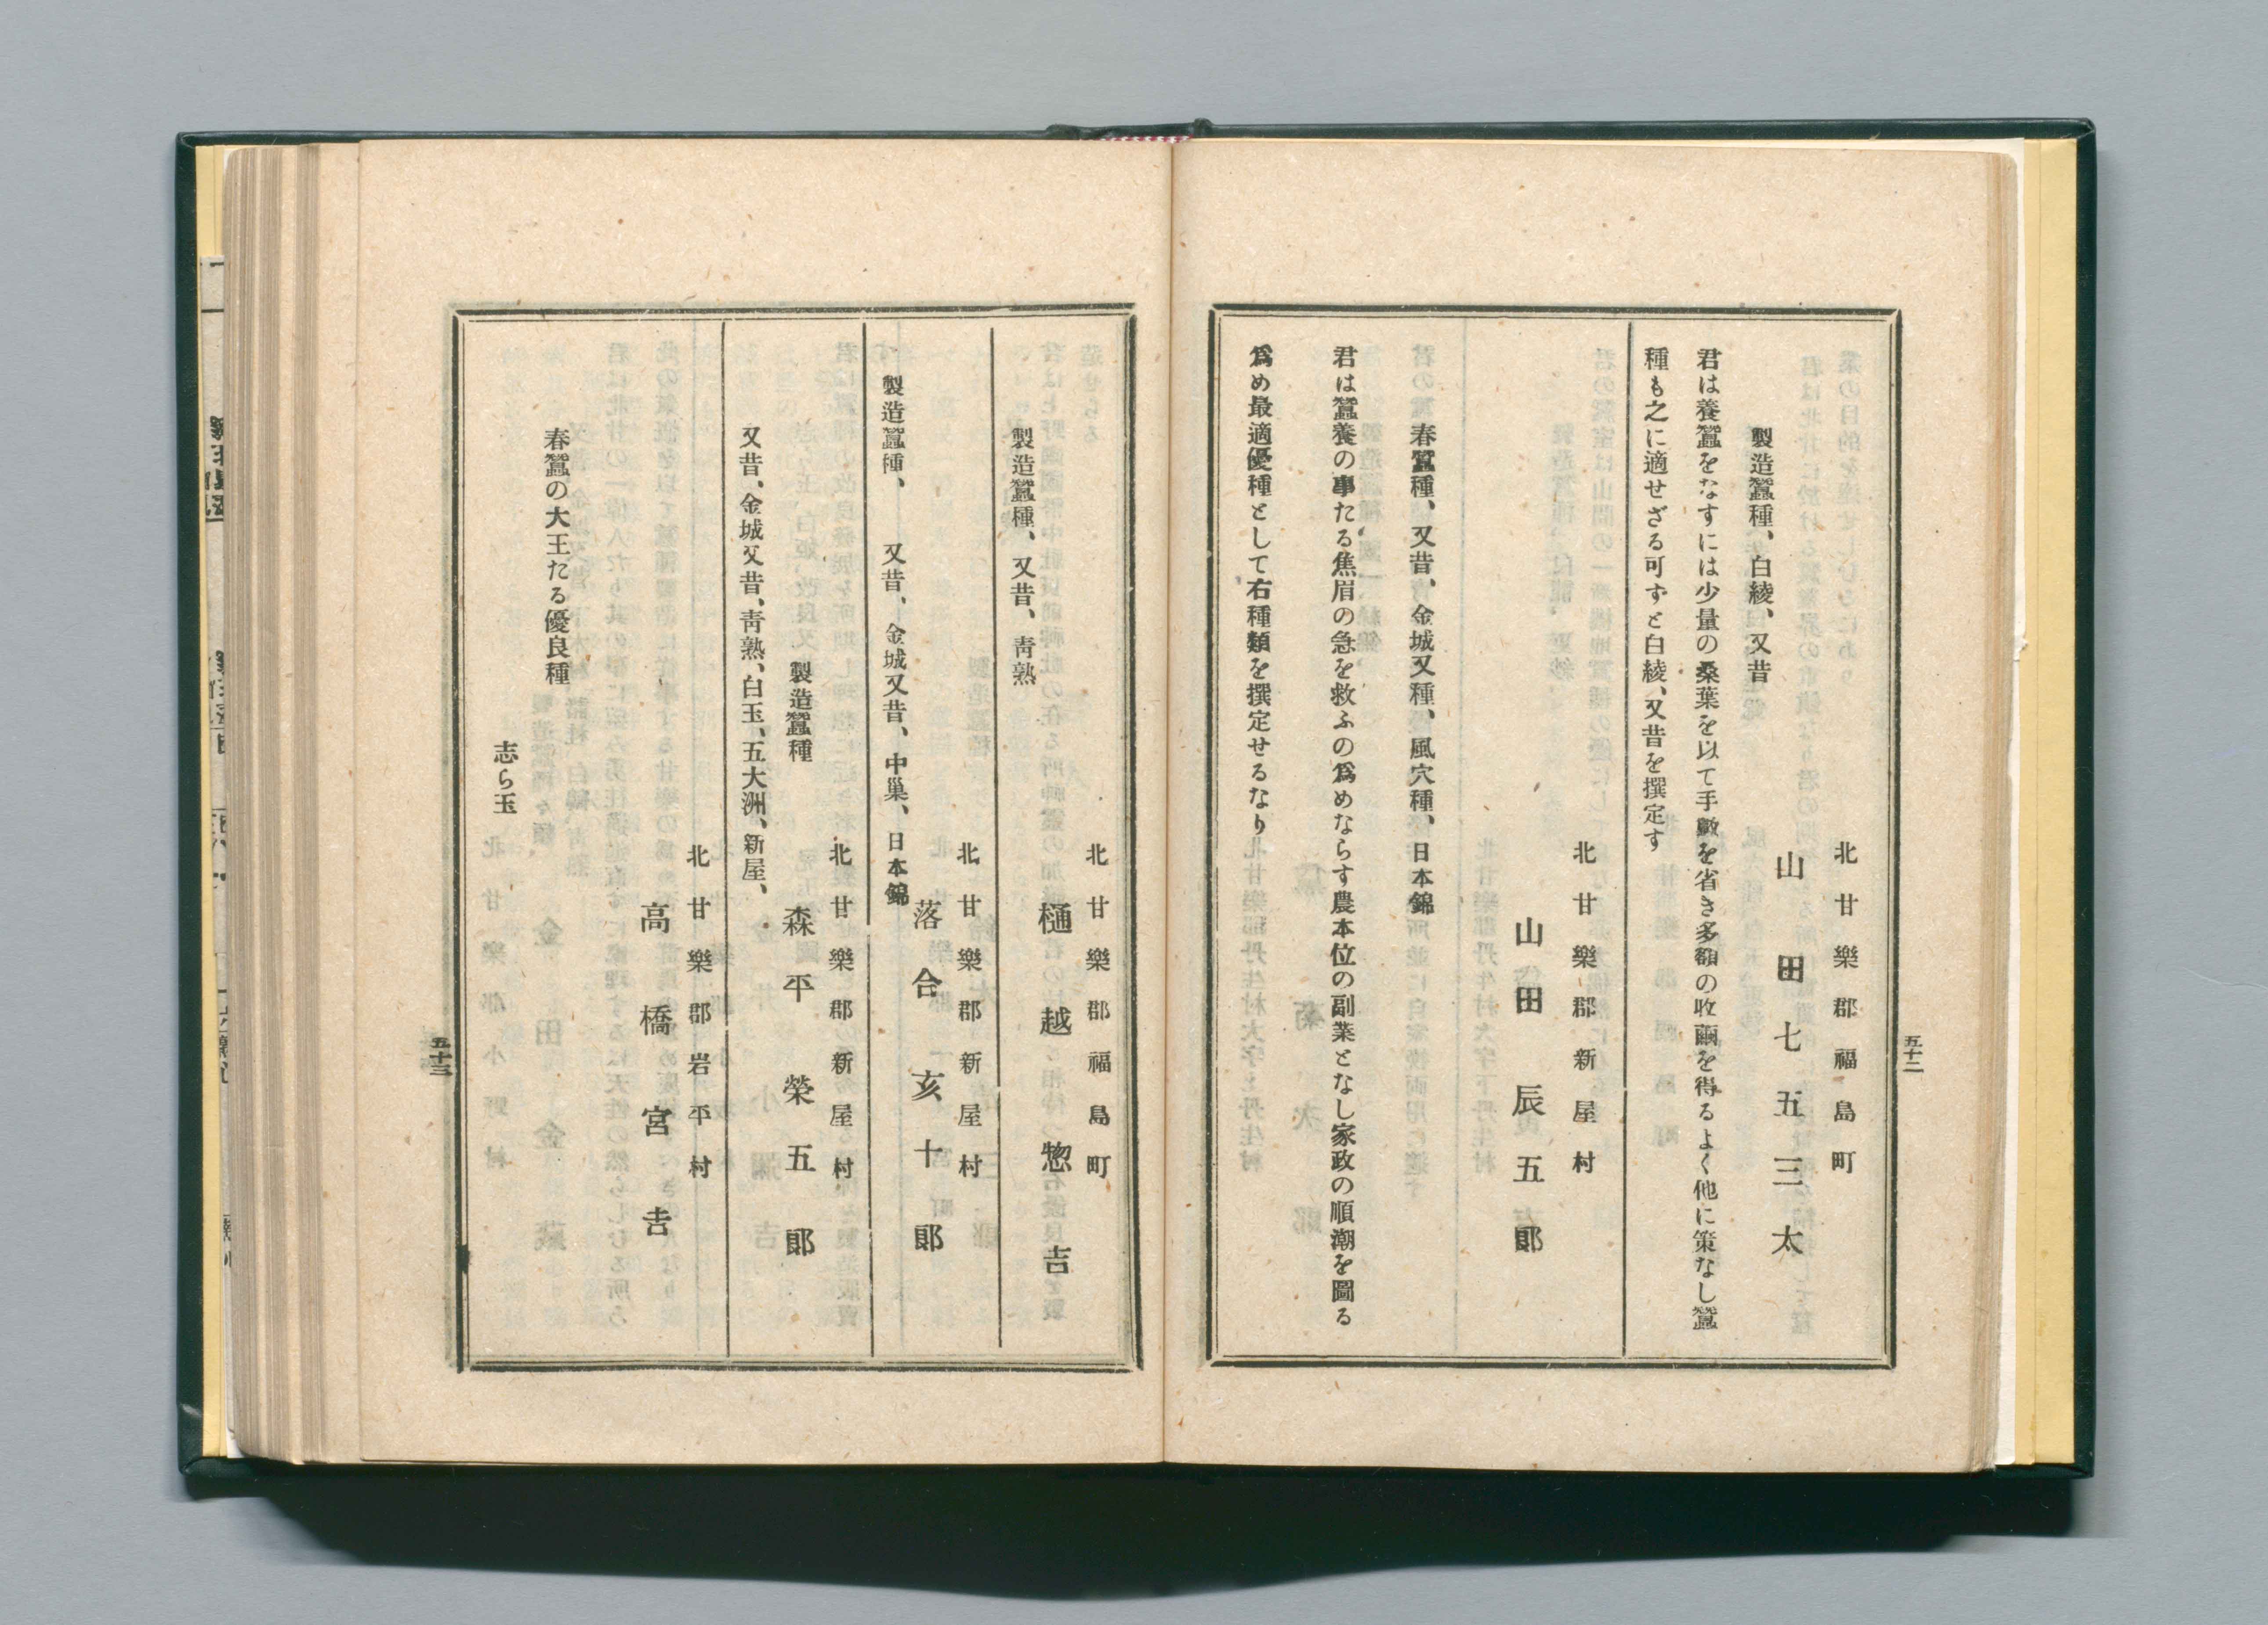 五十二
北甘樂郡福島町
山田七五三太
製造蠶種、白綾、又昔
君は養蠶をなすには少量の桑葉を以て手數を省き多額の收繭を得るよく他に策なし蠶
種も之に適せざる可すと白綾、又昔を撰定す
北甘樂郡新屋村
山田辰五郎
春蠶種、又昔、金城又種、風穴種、日本錦
君は蠶養の事たる焦眉の急を救ふの爲めならす農本位の副業となし家政の順潮を圖る
爲め最適優種として右種類を撰定せるなり
北甘樂郡福島町
樋越惣吉
製造蠶種、又昔、靑熟
北甘樂郡新屋村
落合亥十郎
製造蠶種、又昔、金城又昔、中巢、日本錦
北甘樂郡新屋村
森平榮五郎
製造蠶種
又昔、金城又昔、靑熟、白玉、五大洲、新屋、
北甘樂郡岩平村
高橋宮吉
春蠶の大王たる優良種
志ら玉
五十三